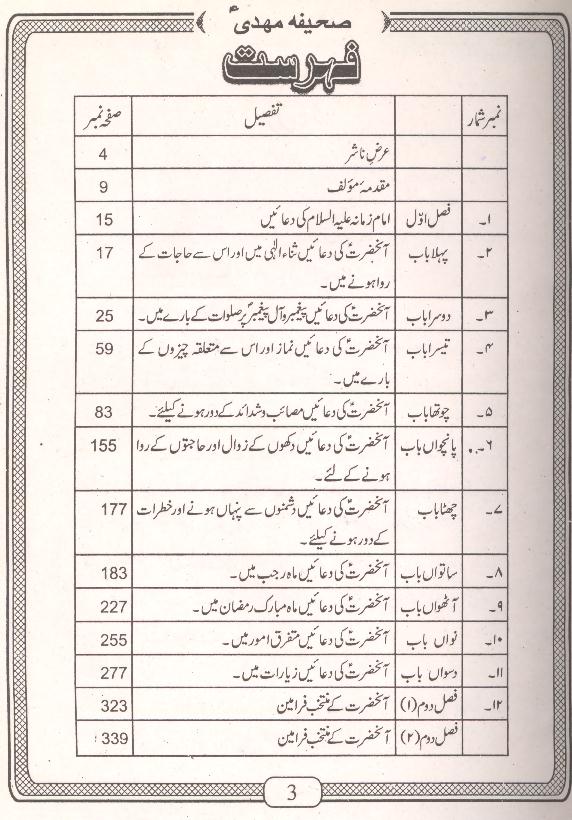 صحیفہ مہدیؑ
فہرست
نمبر شمار تفصیل صفحہ نمبر
عرض ناشر 4
مقدمۂ مؤلف 9
۱۔ فصل اوّل امام زمانہ علیہ السلام کی دعائیں 15
۲۔ پہلا باب آنحضرتؑ کی دعائیں ثناء الٰہی میں اور اس سے حاجات کے 17
روا ہونے میں۔
۳۔ دوسرا باب آنحضرتؑ کی دعائیں پیغمبر و آل پیغمبرؐ پر صلوات کے بارے میں۔ 25
۴۔ تیسرا باب آنحضرتؑ کی دعائیں نماز اور اس سے متعلقہ چیزوں کے 59
بارے میں۔
۵۔ چوتھا باب آنحضرتؑ کی دعائیں مصائب و شدائد کے دور ہونے کیلئے۔ 83
۶۔ پانچواں باب آنحضرتؑ کی دعائیں دکھوں کے زوال اور حاجتوں کے روا 155
ہونے کے لئے۔
۷۔ چھٹا باب آنحضرتؑ کی دعائیں دشمنوں سے پنہاں ہونے اور خطرات 177
کے دور ہونے کیلئے۔
۸۔ ساتواں باب آنحضرتؑ کی دعائیں ماہ رجب میں۔ 183
۹۔ آٹھواں باب آنحضرتؑ کی دعائیں ماہ مبارک رمضان میں۔ 227
۱۰۔ نواں باب آنحضرتؑ کی دعائیں متفرق امور میں۔ 255
۱۱۔ دسواں باب آنحضرتؑ کی دعائیں زیارات میں۔ 277
۱۲۔ فصل دوم (۱) آنحضرت کے منتخب فرامین 323
فصل دوم (۲) آنحضرت کے منتخب فرامین 339
3